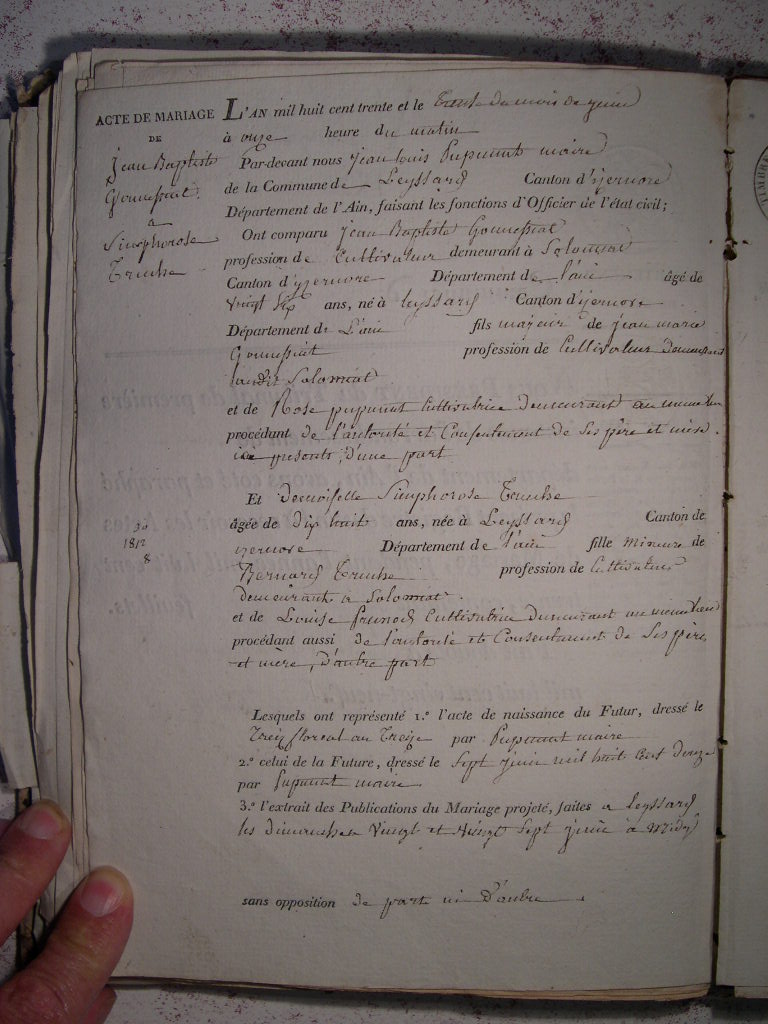 ACTE DE MARIAGE
DE
jean Baptiste
Gonnessiat
a
Simphorose
Truche
L'AN mil huit cent trente et le Trente du mois de juin
à onze heure du matin
Par-devant nous jean louis Pupunat maire
de la Commune de Leyssard Canton d'izernore
Département de l'Ain, faisant les fonctions d'Officier de l'état civil;
Ont comparu jean Baptiste Gonnessiat
profession de Cultivateur demeurant à Solomiat
Canton d'izernore Département de l'ain âgé de
vingt six ans, né à leyssard Canton d'izernore
Département de L'ain fils majeur de jean marie
Gonnessiat profession de Cultivateur demeurant
audit Solomiat
et de Rose pupunat Cultivatrice demeurant au meme lieu
procédant de l'autorité et Consentement de Ses père et mère
ici presents, d'une part
Et demoiselle Simphorose Truche
âgée de dix huit ans, née à Leyssard Canton de
izernore Département de l'ain fille mineure de
Bernard Truche profession de Cultivateur
demeurant a Solomiat.
et de Louise demeurant au meme lieu
procédant aussi de l'autorité et Consentement de Ses père
et mère, D'autre part
30
1812
8
Lesquels ont représenté 1.º l'acte de naissance du Futur, dressé le
Treize floreal an Treize par Pupunat maire
2.º celui de la Future, dressé le Sept juin mil huit Cent douze
par pupunat maire
3.º l'extrait des Publications du Mariage projeté, faites a leyssard
les dimanches Vingt et Vingt Sept juin à midy
sans opposition de part ni D'autre.